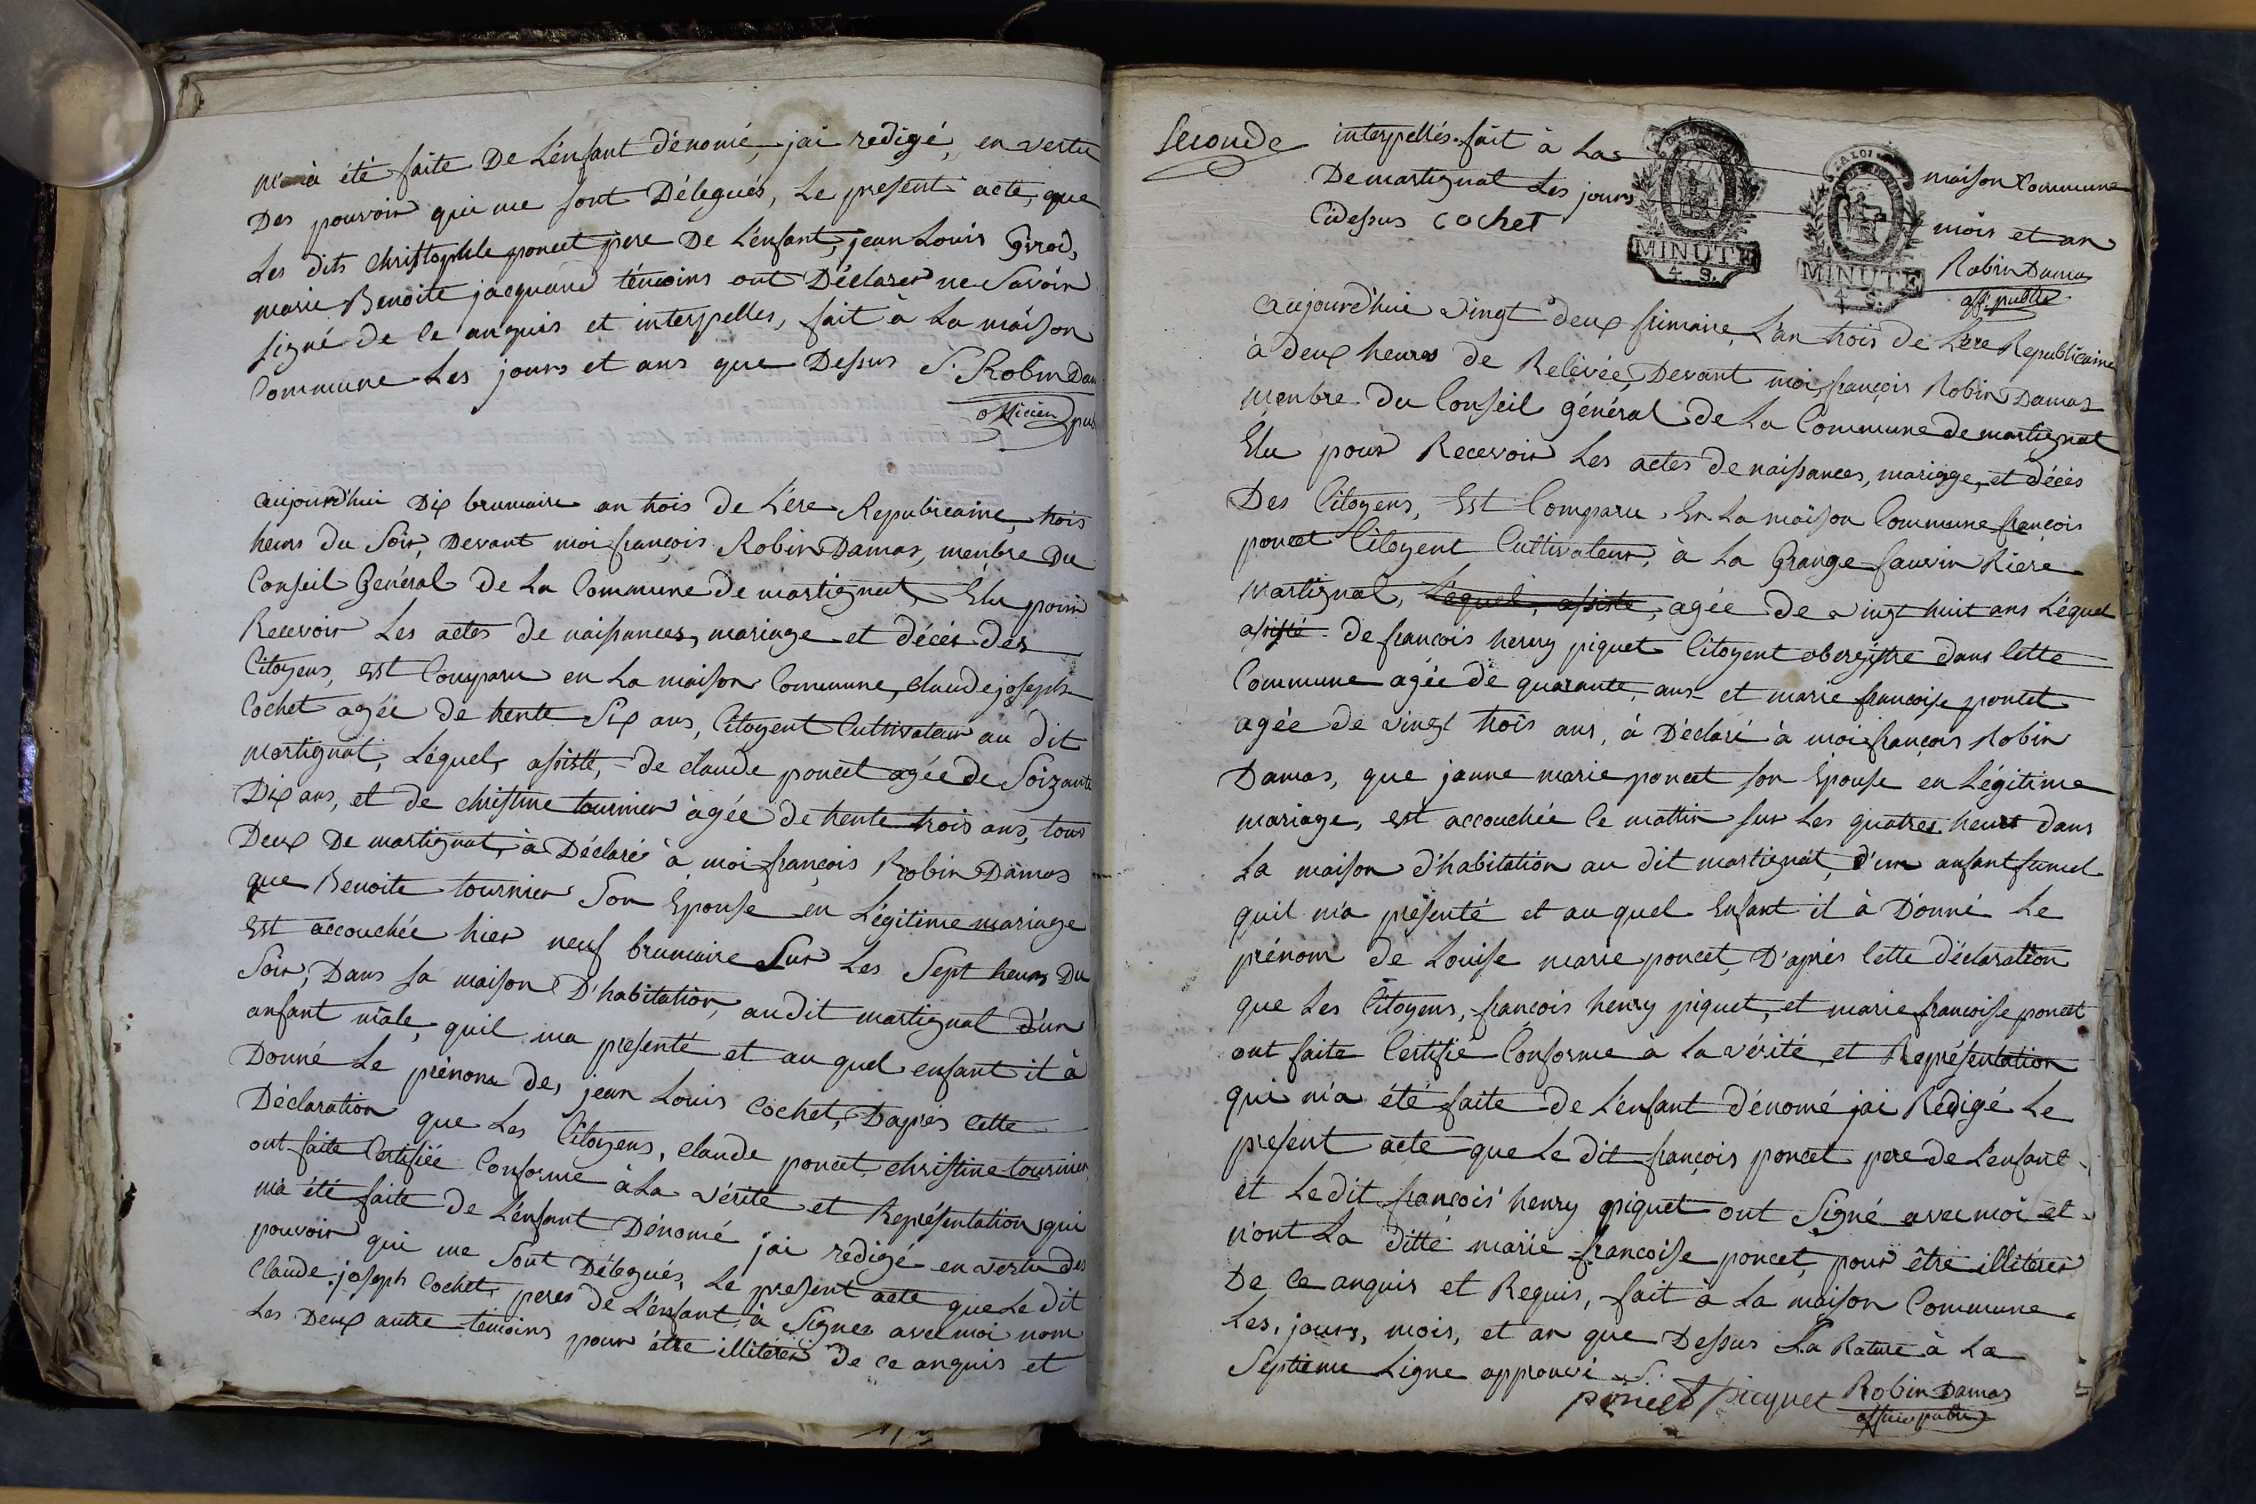 m'a été faite De L'enfant dénomé, jai redigé, en vertu
Des pouvoir qui me sont Délegués, Le présent acte, que
Les dits christophle poncet pere De L'enfant, jean Louis Girod,
marie Benoite jacquand témoins ont Déclarer ne Savoir
signé de ce anquis et interpelles, fait à La maison
Commune Les jours et ans que Dessus S. Robin Dam
officier pub
aujourd'hui Dix brumaire an trois de L'ère Republicaine, trois
heurs du Soir, Devant moi françois Robin Damas, menbre Du
Conseil Général de La Commune de martignat, Elu pour
Recevoir Les actes de naissances, mariage et décès des
Citoyens, est Comparu en La maison Commune, claude joseph
Cochet agée de trente Six ans, Citoyent Cultivateur au dit
martignat, Léquel, assisté, de claude poncet agée de Soizante
Dix ans, et de christine tournier agée de trente trois ans, tous
Deux De martignat, à Déclaré à moi françois Robin Damas
que Benoite tournier Son Epouse en Légitime mariage
Est accouchée hier neuf brumaire Sur Les Sept heurs Du
Soir, Dans sa maison D'habitation, au dit martignat d'un
anfant mâle, quil ma presenté et au quel enfant il à
Donné Le prénom de, jean Louis Cochet, D'après cette
Déclaration que Les Citoyens, claude poncet, christine tournier
ont faite Certifiée Conforme à La vérité et Représentation qui
m'a été faite de L'enfant Dénomé jai redigé en vertu des
pouvoir qui me Sont Délegués, Le present acte que Le dit
Claude joseph Cochet, peres de L'enfant à Signée avec moi nom
Les Deux autre témoins pour être illitérés de ce anquis et
Seconde
interpellés fait à La maison Commune
De martignat Les jours mois et an
Cidessus cochet Robin Damas
off. public
MINUTE
4 S.
MINUTE
4 S.
aujourd'hui vingt deux frimaire, L'an trois de L'ère Republicaine
à deux heures de Relevée, Devant moi, françois Robin Damas
menbre du Conseil général de La Commune de martignat
Elu pour Recevoir Les actes de naissances, mariage, et décès
Des Citoyens, Est Comparu En La maison Commune françois
poncet Citoyent Cultivateur, à La Grange fauvin Riere
Martignat, Lequel, assisté, agée de vingt huit ans Léquel
assisté de françois henry piquet Citoyent oberegistre dans Cette
Commune agée de quarante, ans et marie françoise poncet
agée de vingt trois ans, à Déclaré à moi françois Robin
Damas, que janne marie poncet son Epouse en Légitime
mariage, est accouchée ce mattin sur Les quatres heurs dans
La maison d'habitation au dit martignat, d'un anfant fumel
quil m'a présenté et au quel Enfant il à Donné Le
prénom de Louise marie poncet, D'après Cette déclaration
que Les Citoyens, françois henry piquet, et marie françoise poncet
ont faite Certifié Conforme à La vérité, et Représentation
qui m'a été faite de L'enfant dénomé jai Redigé Le
present acte que Le dit françois poncet pere de L'enfant
et Le dit françois henry piquet ont Signé avec moi et
n'ont La ditte marie francoise poncet, pour être illitérés
De ce anquis et Requis, fait à La maison Commune
Les, jours, mois, et an que Dessus La Rature à La
Septieme Ligne approuvé S.
poncet picquet Robin Damas
officier public